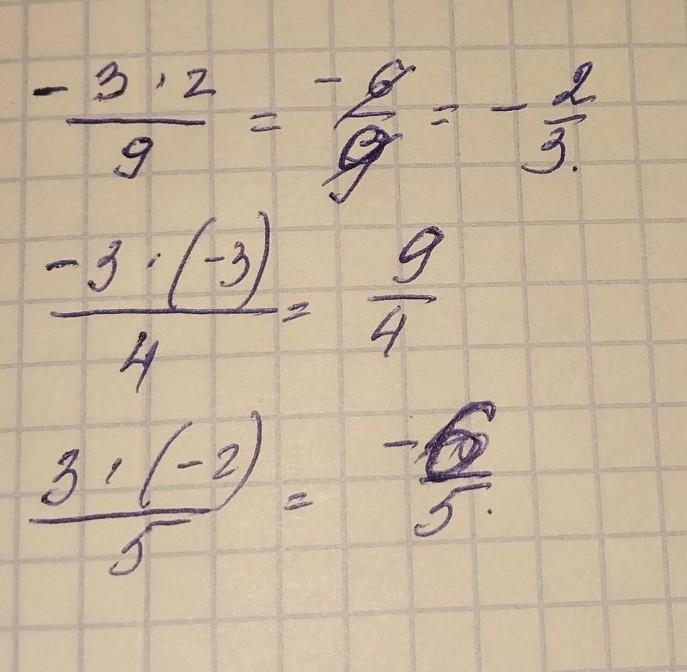 -3·2/9 = -6/9 = -2/3.
-3·(-3)/4 = 9/4
3·(-2)/5 = -6/5.